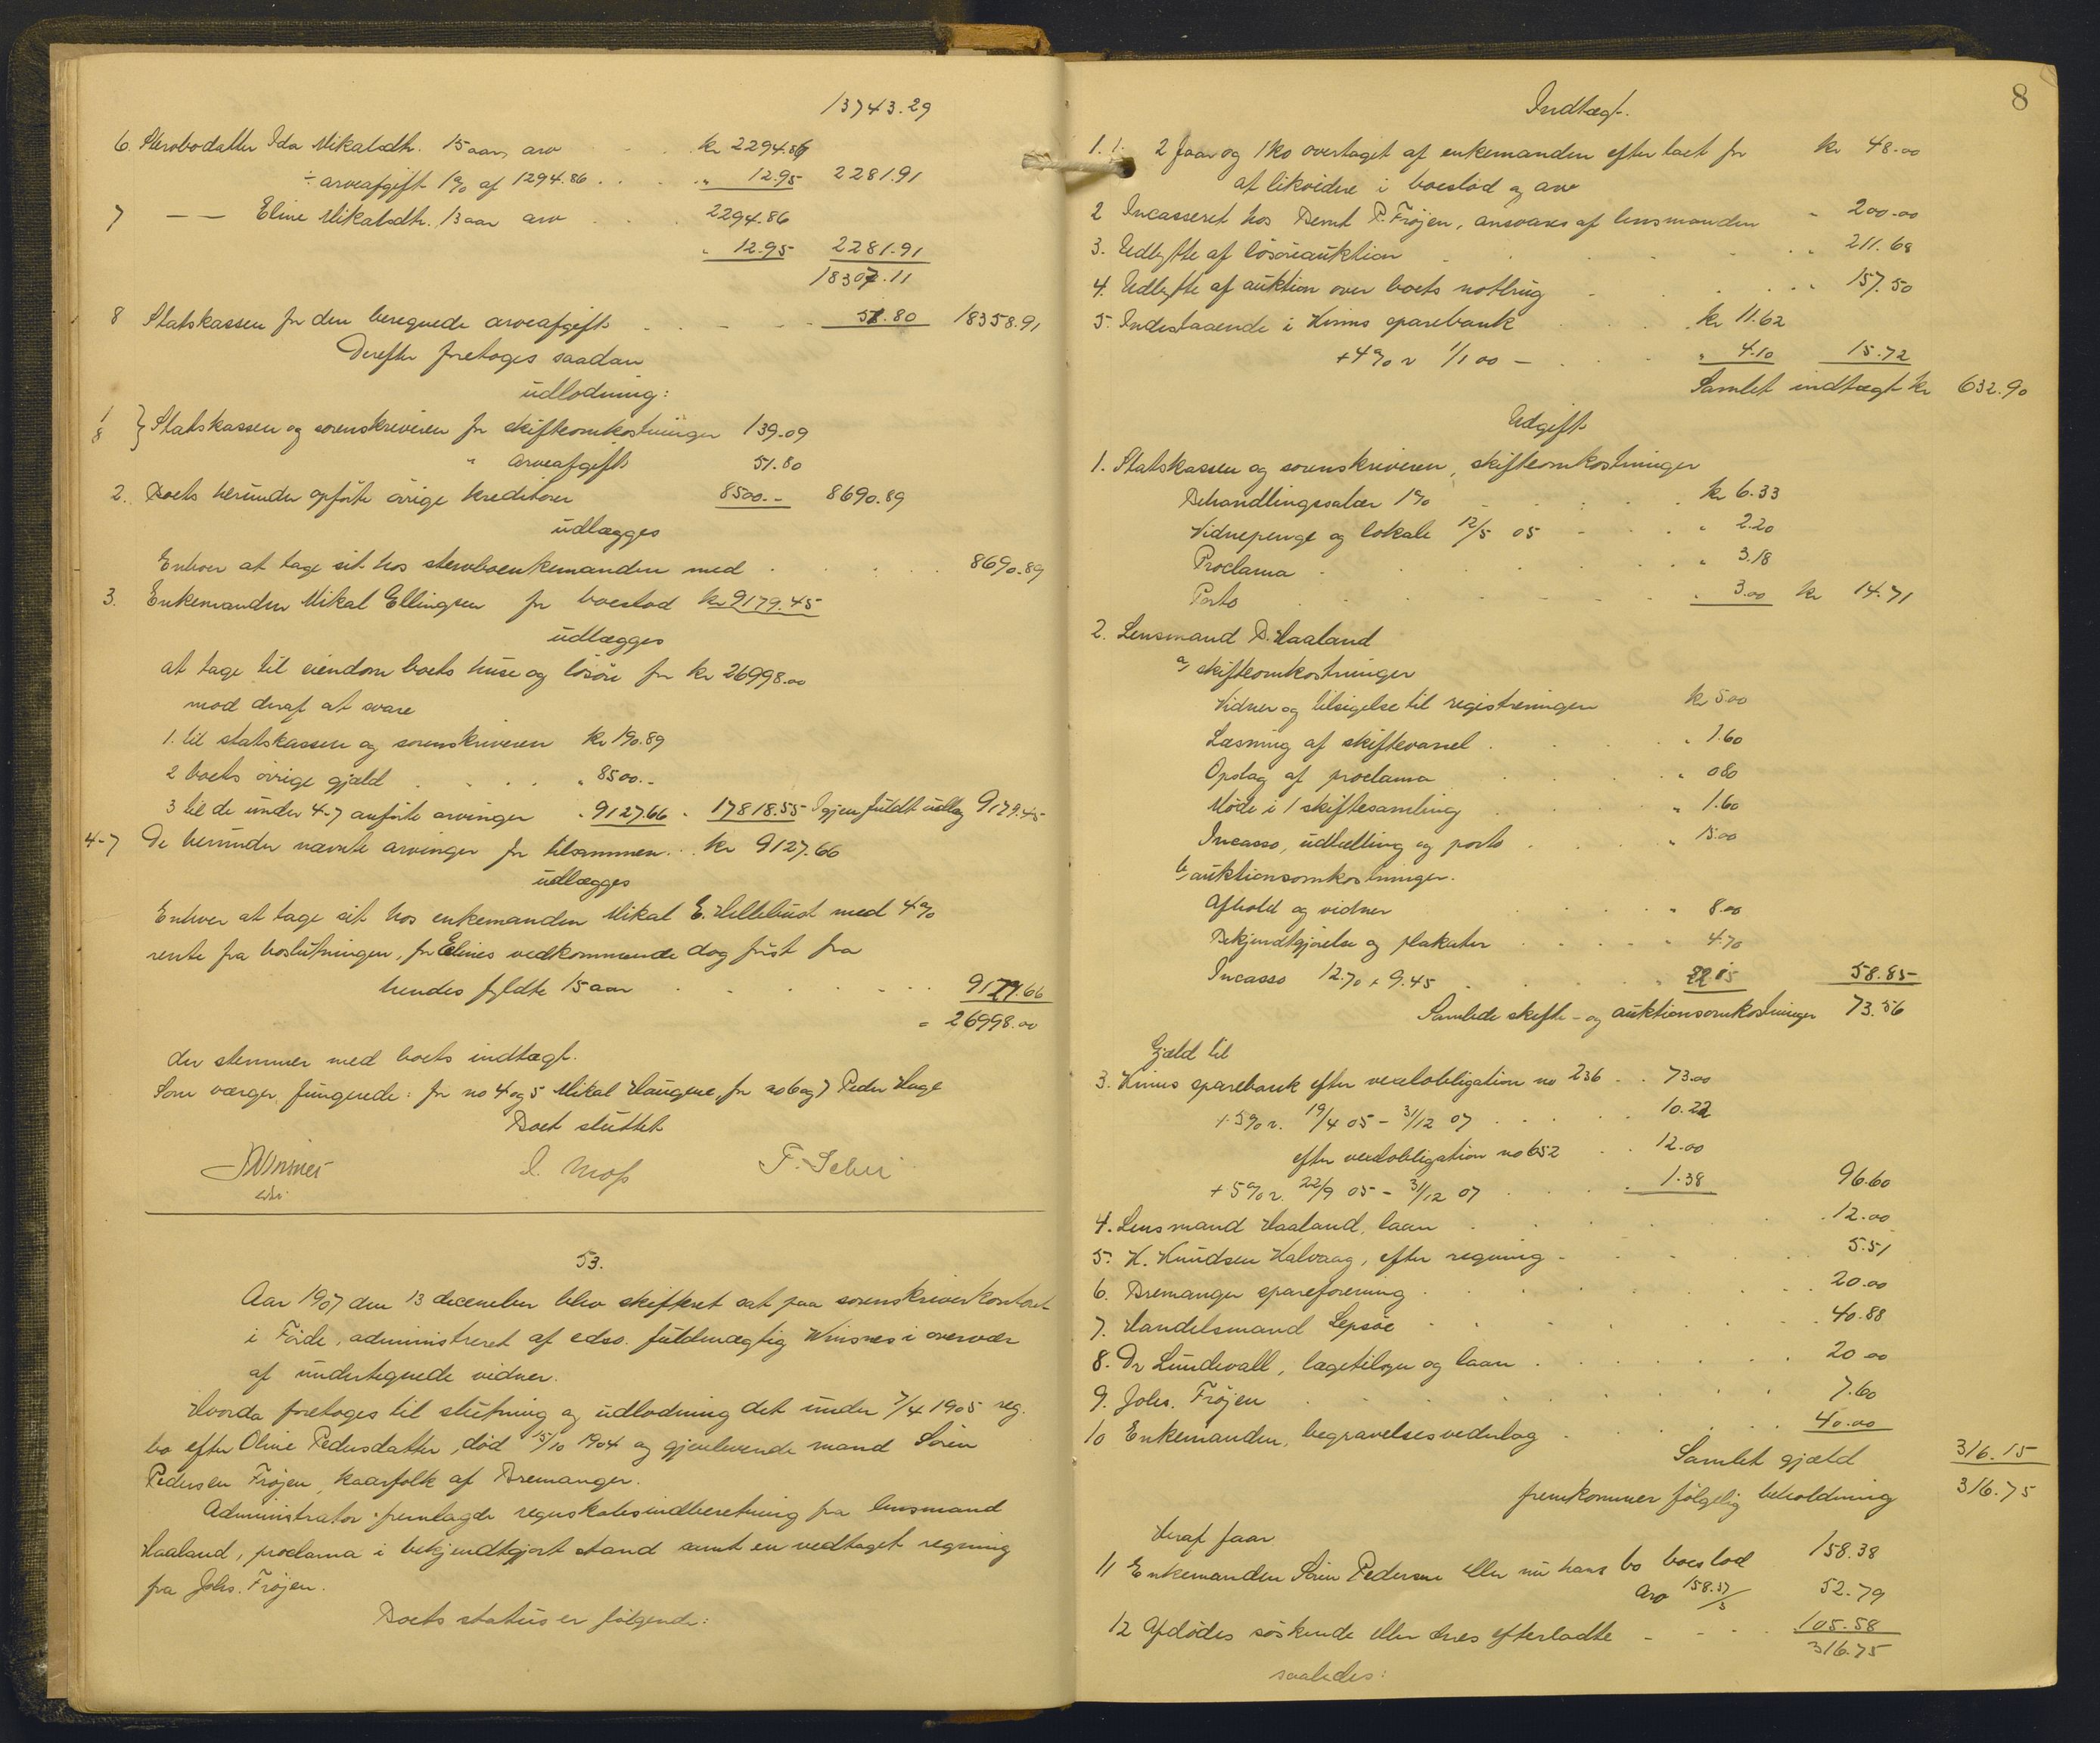 13743.29
6. Stervbodatter Ida Mikalsdtr. 15 aar, arv . . . kr 2294.86
÷ arveafgift 1% af 1294.86 . . . . „ 12.95 2281.91
7 — — Eline Mikalsdtr. 13 aar arv . . . 2294.86
„ 12.95 2281.91
18307.11
8 Statskassen for den beregnede arveafgift . . . . 51.80 18358.91
Derefter foretoges saadan
udlodning:
1/8 } Statskassen og sorenskriveren for skifteomkostninger 139.09
„ arveafgift 51.80
2. Boets herunder opførte øvrige kreditorer 8500.- 8690.89
udlægges
Enhver at tage sit hos stervboenkemanden med . . . . . 8690.89
3. Enkemanden Mikal Ellingsen for boeslod kr 9179.45
udlægges
at tage til eiendom boets huse og løsøre for kr 26998.00
mod deraf at svare
1. til statskassen og sorenskriveren kr 190.89
2 boets øvrige gjæld . . . . „ 8500.-
3 til de under 4-7 anførte arvinger „ 9127.66 „ 17818.55 Igjen fuldt udlæg 9179.45
4-7 De herunder nævnte arvinger for tilsammen . . kr 9127.66
udlægges
Enhver at tage sit hos enkemanden Mikal E. Hillebust med 4%
rente fra boslutningen, for Elines vedkommende dog først fra
hendes fyldte 15 aar . . . . . . . 9127.66
= 26998.00
der stemmer med boets indtægt.
Som værger fungerede: for no 4 og 5 Mikal Haugene, for no 6 og 7 Peder Hage
Boet sluttet
Winsnes
edsv.
I. Moss
F. Sehui
53.
Aar 1907 den 13 december blev skifteret sat paa sorenskriverkontoret
i Førde, administreret af edsv. fuldmægtig Winsnes i overvær
af undertegnede vidner.
Hvorda foretoges til slutning og udlodning det under 7/4 1905 reg.
bo efter Oline Pedersdatter, død 15/10 1904 og gjenlevende mand Søren
Pedersen Frøjen, kaarfolk af Bremanger.
Administrator fremlagde regnskabsindberetning fra lensmand
Haaland, proclama i bekjendtgjort stand samt en vedtaget regning
fra Johs. Frøjen.
Boets status er følgende:
8
Indtægt.
1. 1. 2 faar og 1 ko overtaget af enkemanden efter taxt for kr 48.00
at likvidere i boeslod og arv
2 Incasseret hos Bernt P. Frøjen, ansvares af lensmanden „ 200.00
3. Udbytte af løsøreauktion . . . . . . 211.68
4. Udbytte af auktion over boets notbrug . . . . . 157.50
5. Indestaaende i Kinns sparebank . . . kr 11.62
+ 4% r 1/1 00 — . . . „ 4.10 15.72
Samlet indtægt kr 632.90
Udgift
1. Statskassen og sorenskriveren, skifteomkostninger
Behandlingssalær 1% . . . . kr 6.33
Vidnepenge og lokale 12/5 05 . . . „ 2.20
Proclama . . . . . . . „ 3.18
Porto . . . . . . . „ 3.00 kr 14.71
2. Lensmand B. Haaland
a) skifteomkostninger
Vidner og tilsigelse til registreringen kr 5.00
Læsning af skiftevarsel . . . . „ 1.60
Opslag af proclama . . . . „ 0.80
Møde i 1 skiftesamling . . . . „ 1.60
Incasso, udbetaling og porto . . . . „ 15.00
b) auktionsomkostninger.
Afhold og vidner . . . . „ 8.00
Bekjendtgjørelse og plakater . . . . . „ 4.70
Incasso 12.70 + 9.45 . . . . . „ 22.15 58.85
Samlede skifte- og auktionsomkostninger 73.56
Gjæld til
3. Kinns sparebank efter vexelobligation no 236 . . 73.00
+ 5% r. 19/4 05 - 31/12 07 . . . . . 10.22
efter vexelobligation no 652 . . 12.00
+ 5% r. 22/9 05 - 31/12 07 . . . . 1.38 96.60
4. Lensmand Haaland, laan . . . . . . 12.00
5. K. Knudsen Kalvaag, efter regning . . . . 5.51
6. Bremanger spareforening . . . . . . . 20.00
7. Handelsmand Lepsøe . . . . . . . 40.88
8. Dr Lundevall, lægetilsyn og laan . . . . . . 20.00
9. Johs. Frøjen . . . . . . . 7.60
10 Enkemanden, begravelsesvederlag . . . . . 40.00
Samlet gjæld 316.15
fremkommer følgelig beholdning 316.75
Heraf faar
11 Enkemanden Søren Pedersen eller nu hans bo boeslod 158.38
Arv 158.37/3 52.79
12 Afdødes søskende eller deres efterladte - - - . . 105.58
316.75
saaledes: